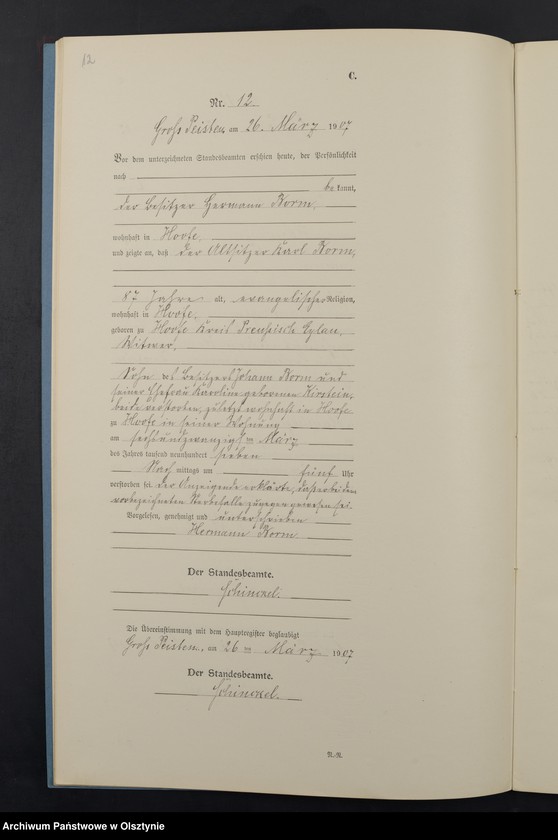 12
C.
Nr. 12.
Gross Peisten, am 26. März 1907
Vor dem unterzeichneten Standesbeamten erschien heute, der Persönlichkeit
nach
bekannt,
der Besitzer Hermann Borm,
wohnhaft in Hoofe,
und zeigte an, daß der Altsitzer Karl Borm,
87 Jahre alt, evangelischer Religion,
wohnhaft in Hoofe,
geboren zu Hoofe Kreis Preußisch Eylau,
Witwer,
Sohn des Besitzers Johann Borm und
seiner Ehefrau Karoline geborenen Kirstein,
beide verstorben, zuletzt wohnhaft in Hoofe
zu Hoofe in seiner Wohnung
am sechsundzwanzigsten März
des Jahres tausend neunhundert sieben
Nachmittags um fünf Uhr
verstorben sei. Der Anzeigende erklärte, daß er bei dem
vorbezeichneten Sterbefalle zugegen gewesen sei.
Vorgelesen, genehmigt und unterschrieben
Hermann Borm
Der Standesbeamte.
Schinckel.
Die Übereinstimmung mit dem Hauptregister beglaubigt
Gross Peisten, am 26ten März 1907
Der Standesbeamte.
Schinckel.
N.-R.
Archiwum Państwowe w Olsztynie